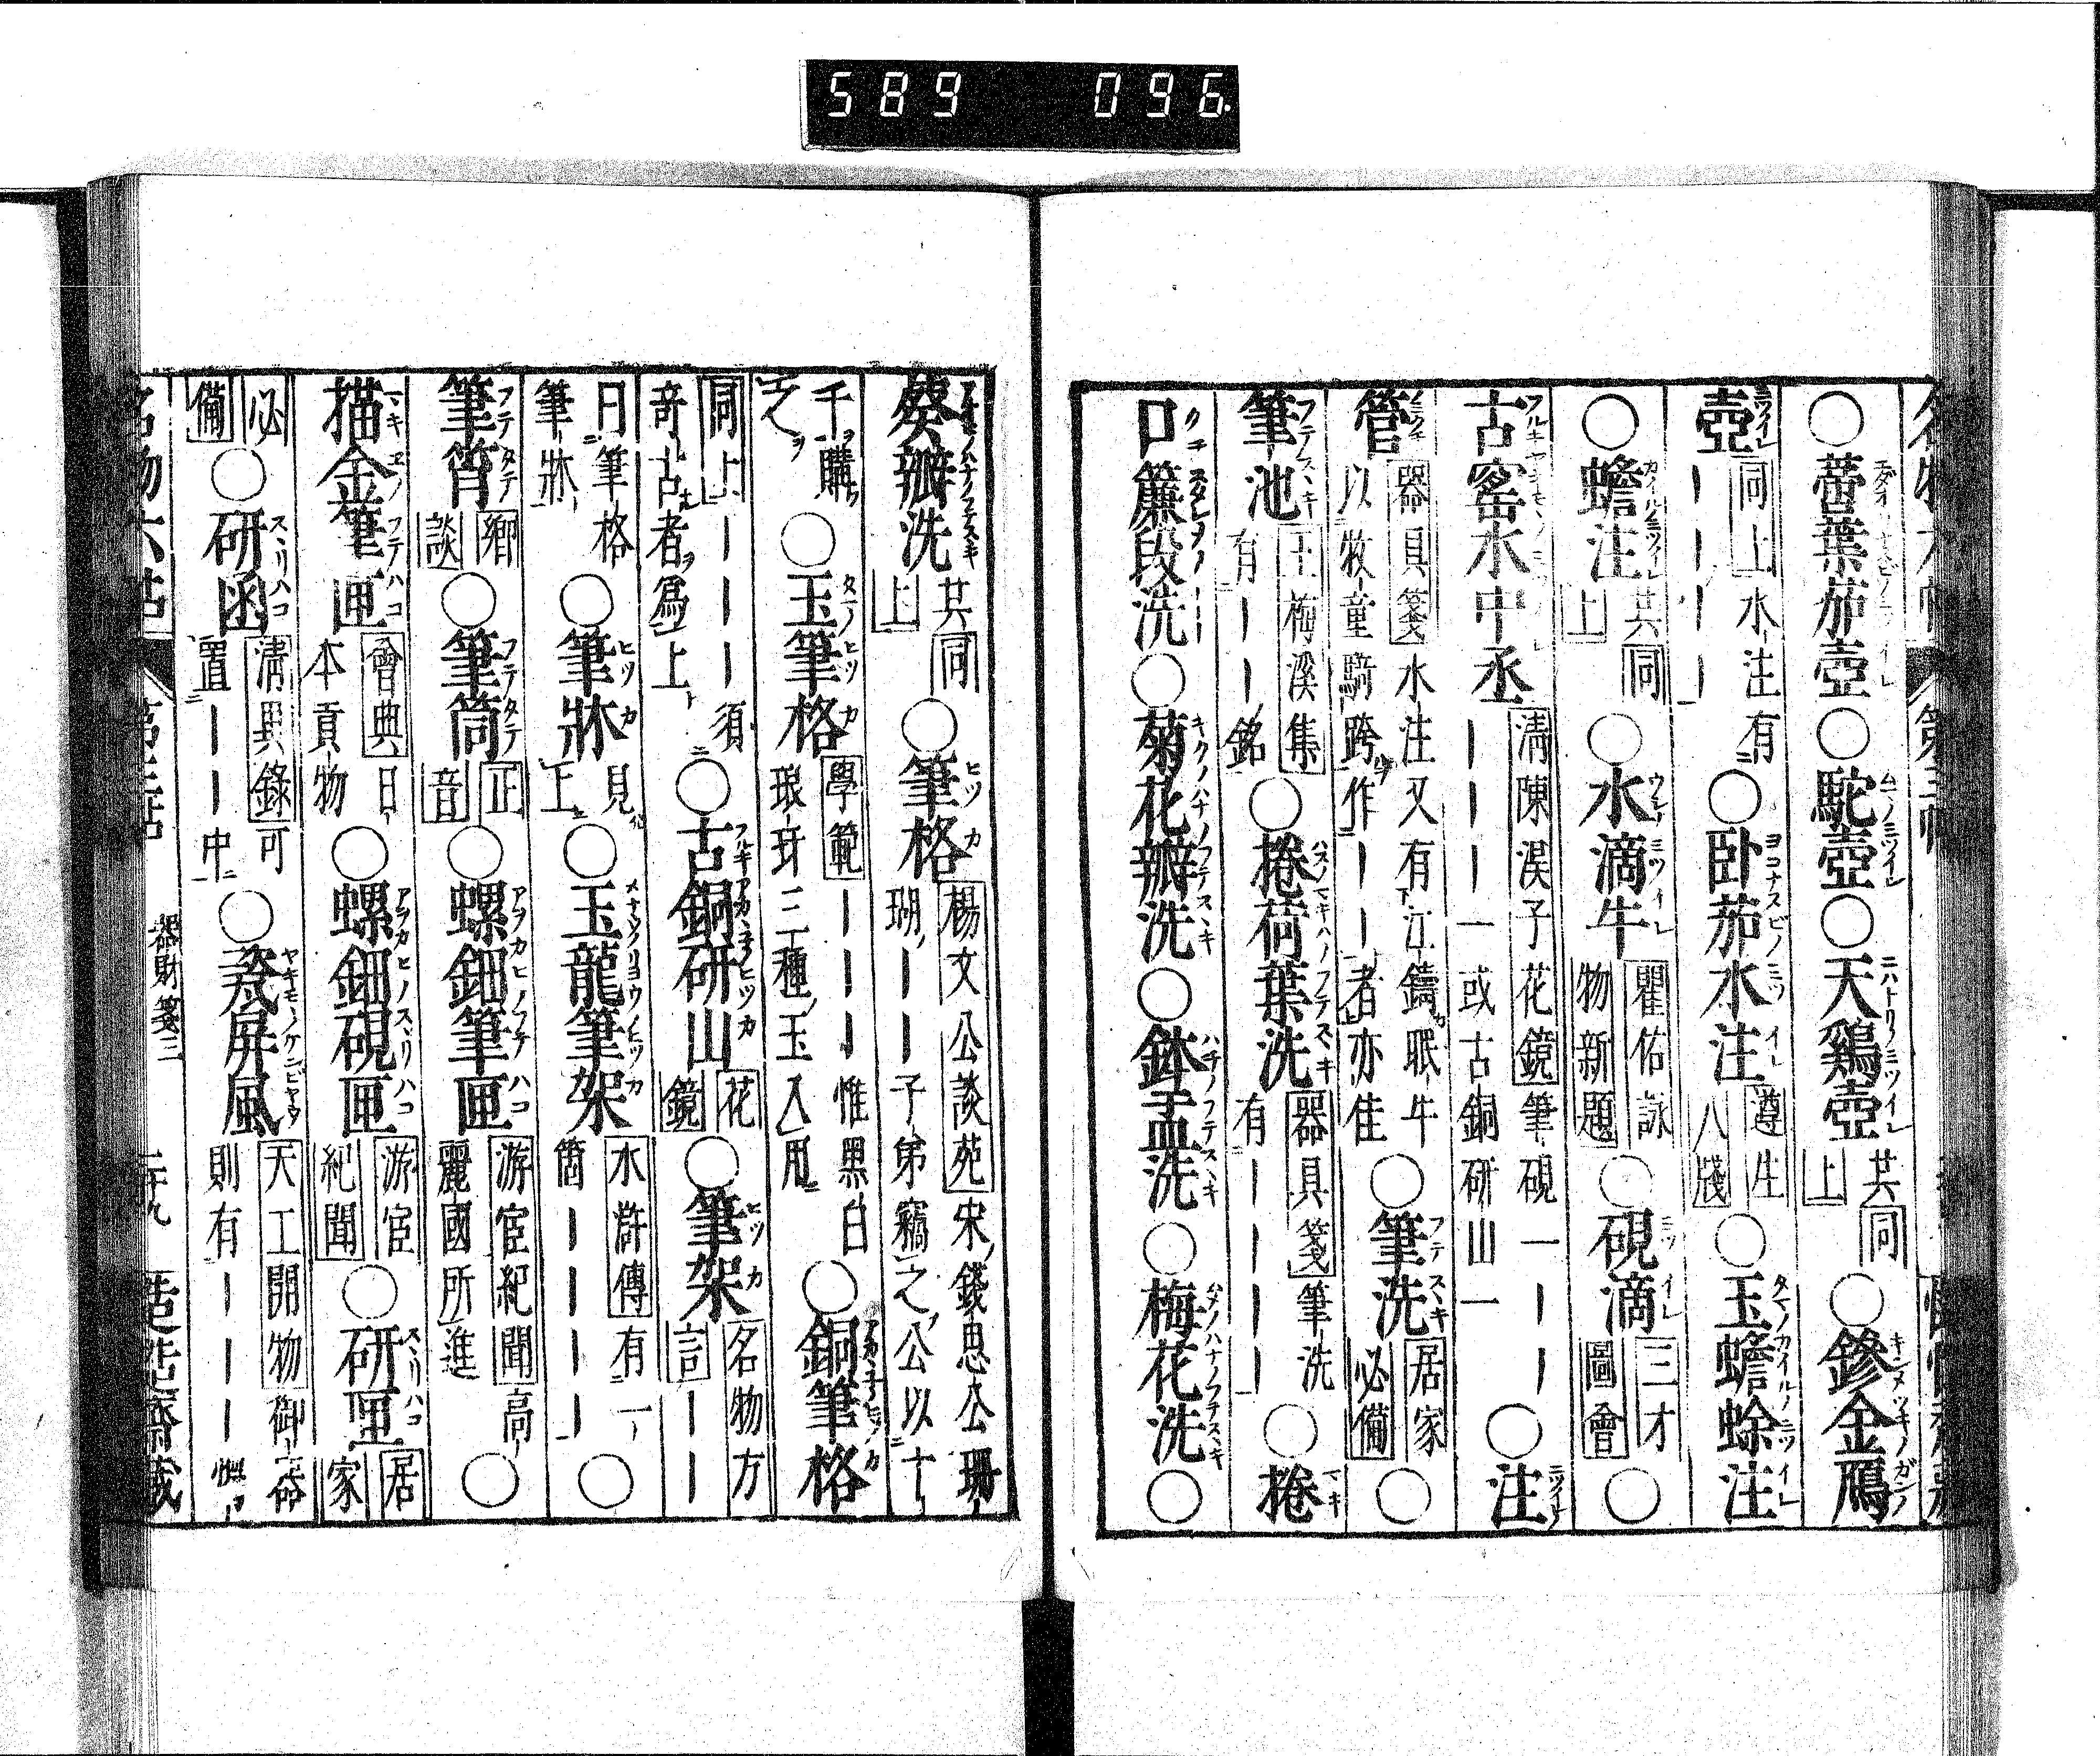 589 096
○蕾葉茄壺○駝壺○天鷄壺共同上○鏒金鴈
壺同上水注有｜｜｜｜○臥茄水注遵生八牋○玉蟾蜍注
○蟾注共同上○水滴牛瞿佑詠物新題○硯滴三才圖會○
古窰水中丞淸陳淏子花鏡筆硯一｜｜｜｜一或古銅研山一○注
管器具箋水注又有江鑄眠牛以牧童騎跨作｜｜者亦佳○筆洗居家必備○
筆池王梅溪集有｜｜銘○捲荷葉洗器具箋筆洗有｜｜｜｜○捲
口簾段洗○菊花瓣洗○鉢盂洗○梅花洗○
葵瓣洗共同上○筆格楊文公談苑宋錢思公珊瑚｜｜子弟竊之公以十
千購之○玉筆格學範｜｜｜惟黑白琅玕三種玉入用○銅筆格
同上｜｜｜須奇古者爲上○古銅研山花鏡○筆架名物方言｜｜
日筆格筆牀○筆牀見上○玉龍筆架水滸傳有一箇｜｜｜｜○
筆筲鄉談○筆筒正音○螺鈿筆匣游宦紀聞高麗國所進○
描金筆匣會典日本貢物○螺鈿硯匣游宦紀聞○研匣居家
必備○研函淸異錄可置｜｜中○瓷屏風天工開物御器則有｜｜｜
名物六帖 第三帖 器財箋三